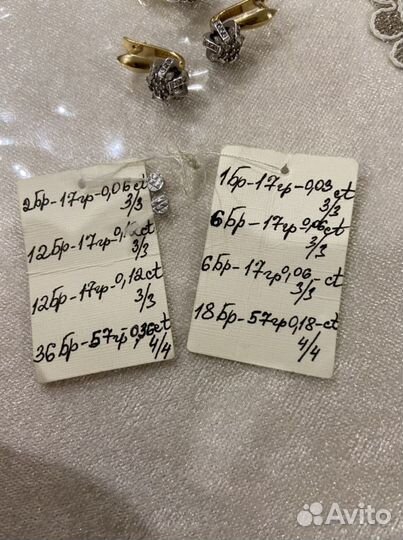 2Бр-17гр-0,06ct
3/3
12Бр-17гр-0,12ct
3/3
12Бр-17гр-0,12ct
3/3
36Бр-57гр-0,36ct
4/4
1Бр-17гр-0,03ct
3/3
6Бр-17гр0,06ct
3/3
6Бр-17гр0,06-ct
3/3
18Бр-57гр0,18-ct
4/4
Avito